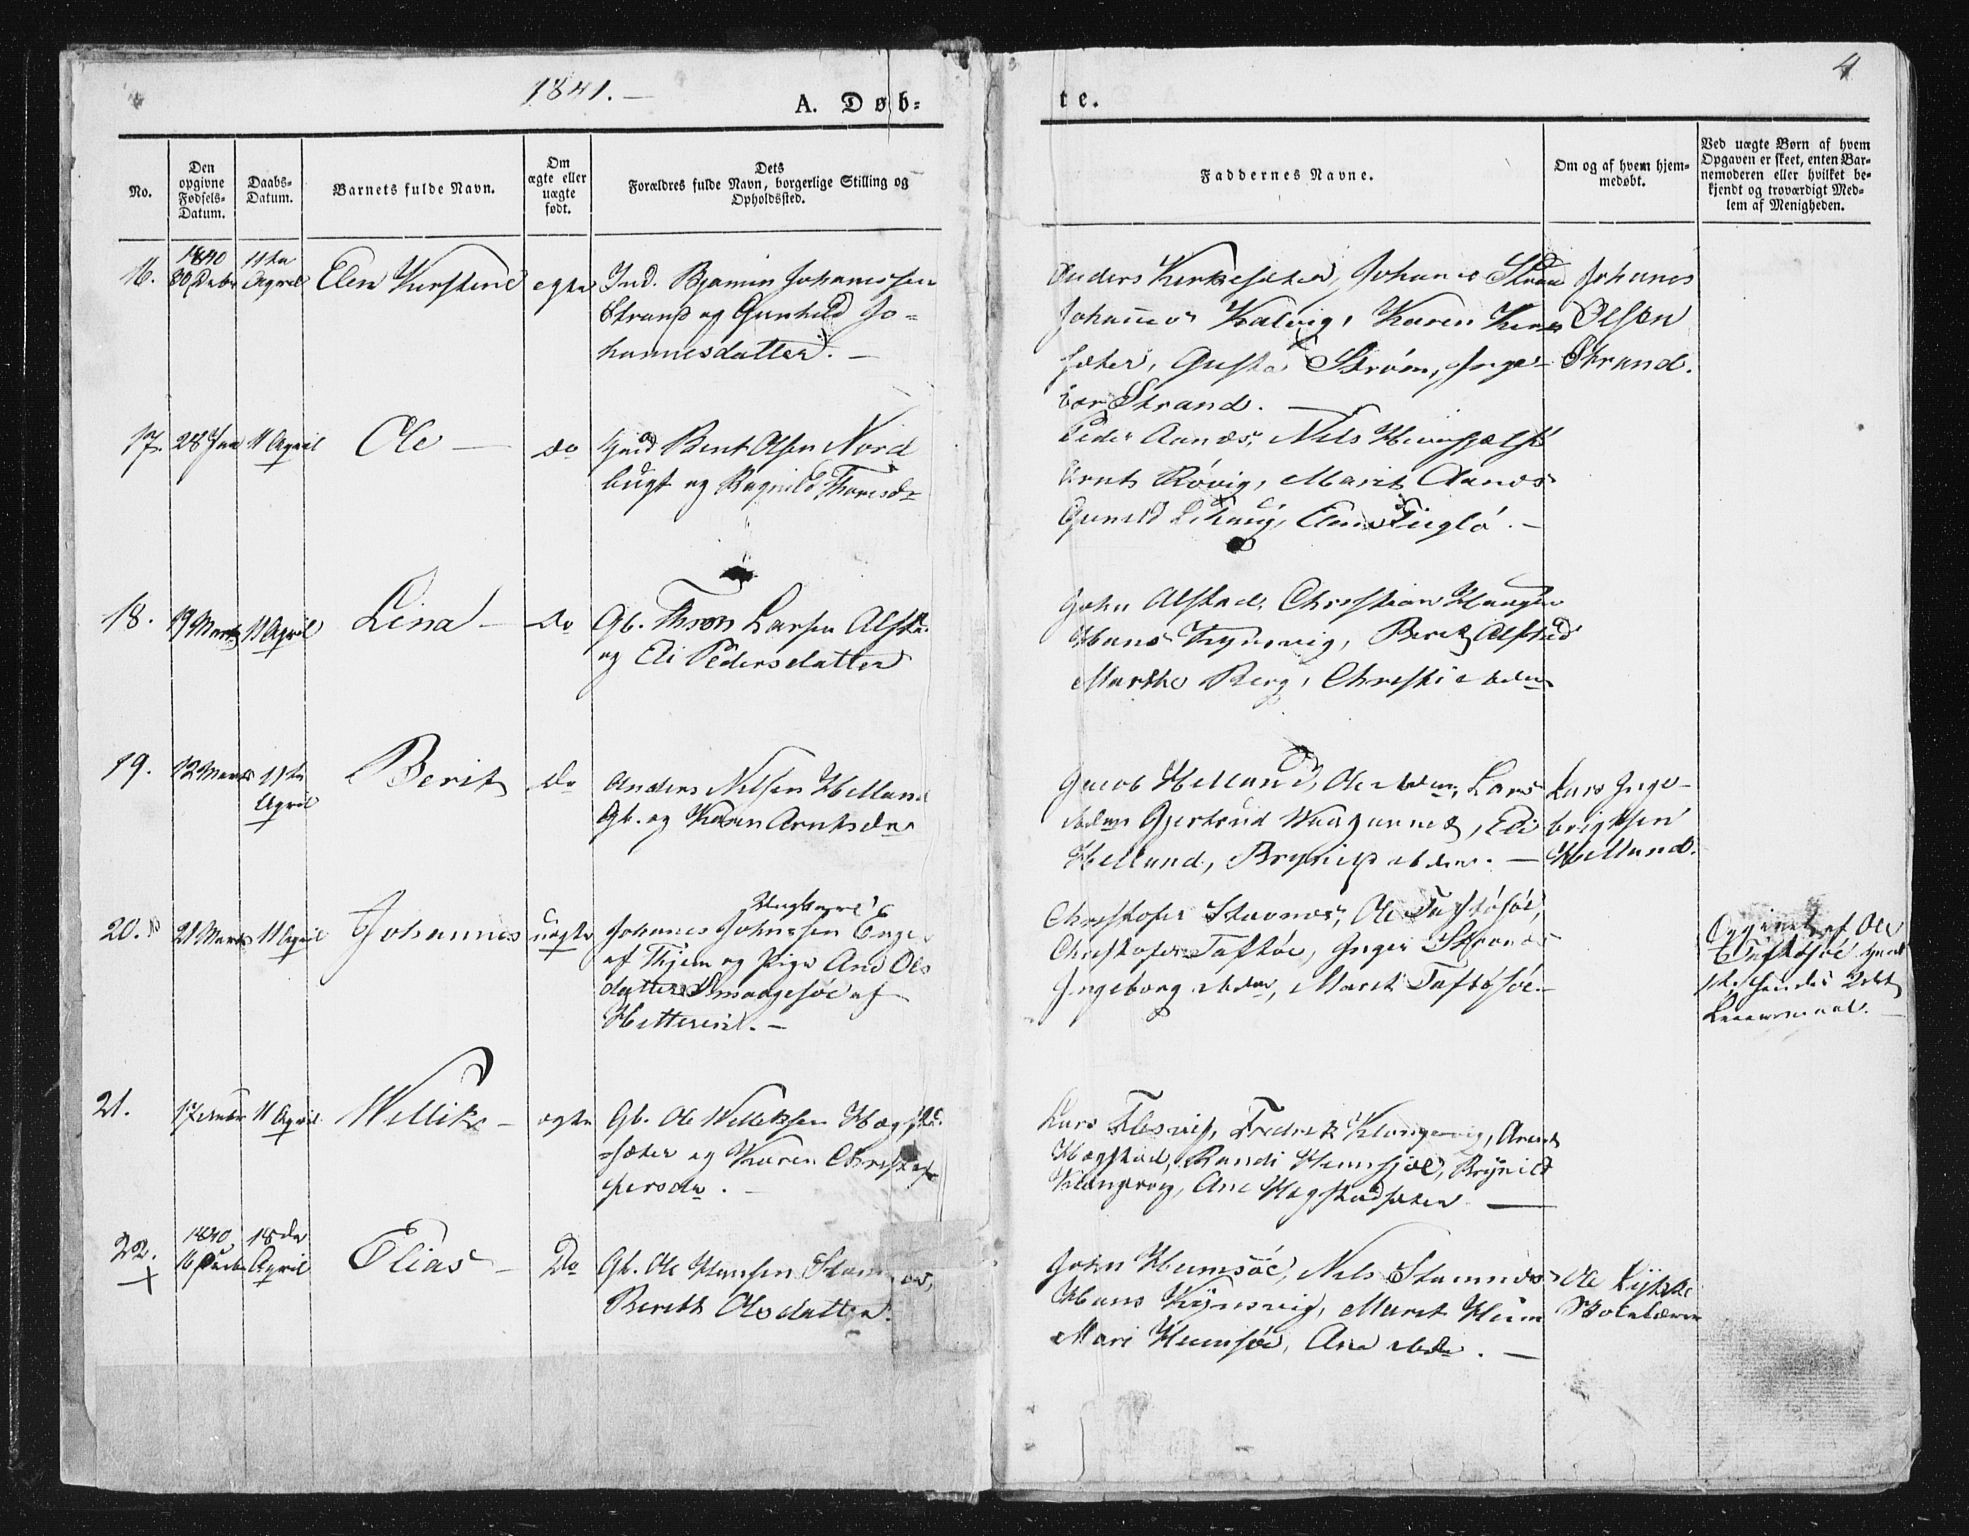 1841. —
4
A. Døb-
te.
No.
Den opgivne Fødsels-Datum.
Daabs-Datum.
Barnets fulde Navn.
Om ægte eller uægte født.
Dets Forældres fulde Navn, borgerlige Stilling og Opholdssted.
Faddernes Navne.
Om og af hvem hjem-medøbt.
Ved uægte Børn af hvem Opgaven er skeet, enten Bar-nemoderen eller hvilket be-kjendt og troværdigt Med-lem af Menigheden.
16.
1840
30 Decbr
11te April
Elen Kirstine
egte
Ind. Bjamin Johannesen
Strand og Gunhild Jo-
hannesdatter. —
Anders Kirkesæter, Johanes Strand
Johannes Kalvig, Karen Kirke
sæter, Gusta Strøm, Inge-
bor Strand. —
Johanes
Olsen
Strand.
17.
28 Jan
11 April
Ole —
do
Bent Olsen Nord
bugt og Ragnild
Peder Aanæs, Nils
Arnt Røvig, Marit Aanæs
Gunild
18.
19 Marts
11 April
Lina —
do
Gb. Thron Larsen Alstad
og Eli Pedersdatter
John Alstad, Christian Haugen
Hans Kynsvig, Berit Alstad
Marthe Berg, Christie ibdm
19.
12 Marts
11te
April
Berit
do
Anders Nilsen Helland
Gb. og Karen Arntsdr
Jacob Helland, Ole ibdm, Lars
ibdm Gjertrud, Eli
Helland, Brynild ibdm. —
Lars Inge-
brigtsen
Helland.
20.
21 Marts
11 April
Johannes
uægte
Ungkarl
Johanes Johnsen Enge
af Thjem og Pige Ane Ols
datter Smaagesøe af
Hitteren. —
Christofer Stavnes, Ole Taftøsøe,
Christofer Taftøe, Inger Stranæs
Ingeborg ibdm, Marit Taftøsøe. —
Opgivet af Ole
Taftøsøe
Leiermaal. —
21.
11 April
Willik —
egte
Gb. Ole Willeksen Hægstad-
sæter og Karen Christof-
persdr. —
Lars Flesvig, Fredrik Klungervig, Arent
Hægstad, Randi Hemsjøe, Brynild
Klungervig, Ane Hægstadsæter —
22.
+
1840
16 Decbr
18de
April
Elias —
Do
Gb. Ole Hansen Stamnes,
Berith Olsdatter.
John Hemsøe, Nils Stamnes
Hans Kynsvig, Marit Hem
Mari Hemsøe, Ane ibdm. —
Ole Lykke
Skolelærer